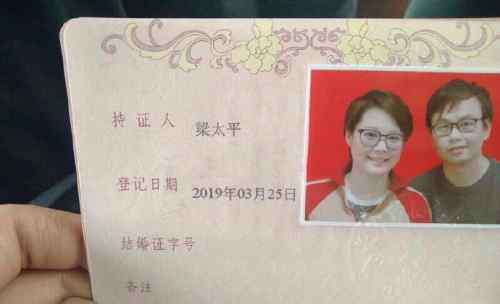 持证人 梁太平
登记日期 2019年03月25日
结婚证字号
备注